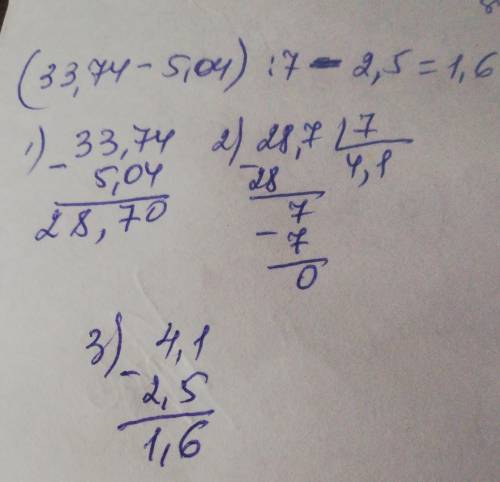 (33,74 - 5,04) : 7 - 2,5 = 1,6
1) 33,74
- 5,04
28,70
2) 28,7 | 7
- 28
4,1
7
- 7
0
3) 4,1
- 2,5
1,6